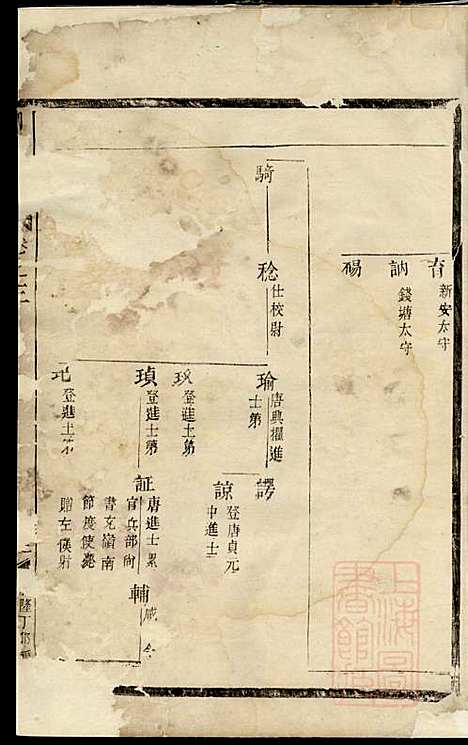 育
新安太守
訥
錢塘太守
禓
騎
稔
仕校尉
瑜
唐興擢進
士第
玖
登進士第
瑱
登進士第
玘
登進士第
諤
諒
登唐貞元
中進士
証
唐進士累
官兵部尚
書充嶺南
節度使薨
贈左僕射
輔
咸
上海圖
書館藏